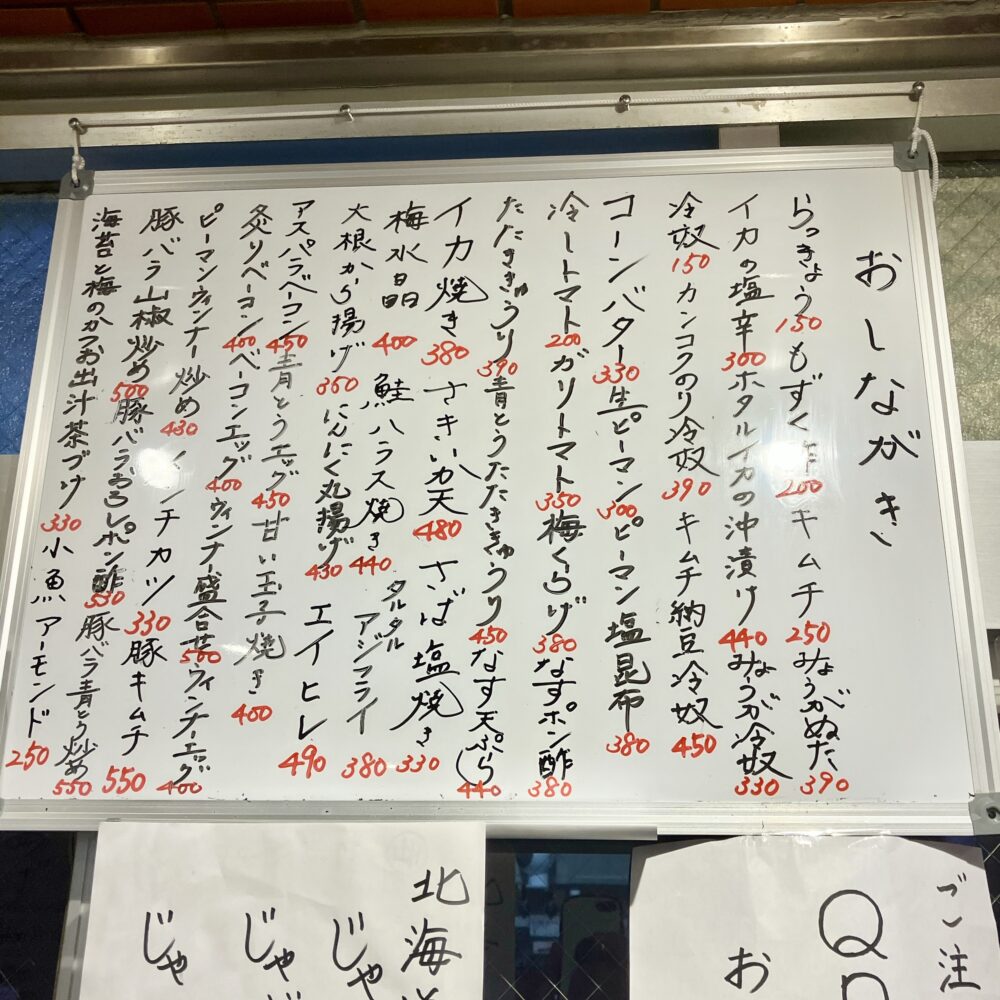 おしながき
らっきょう 150 もずく酢 200 キムチ 250 みょうがぬた 390
イカの塩辛 300 ホタルイカの沖漬け 440 みょうが冷奴 330
冷奴 150 カンコクのり冷奴 390 キムチ納豆冷奴 450
コーンバター 330 生ピーマン 300 ピーマン塩昆布 380
冷しトマト 200 ガリトマト 350 梅くらげ 380 なすポン酢 380
たたききゅうり 390 青とうたたききゅうり 450 なす天ぷら 440
イカ焼き 380 さきいか天 480 さば塩焼き 330
梅水晶 400 鮭ハラス焼き 440 タルタルアジフライ 380
大根から揚げ 350 にんにく丸揚げ 430 エイヒレ 490
アスパラベーコン 450 青とうエッグ 450 甘い玉子焼き 400
炙りベーコン 400 ベーコンエッグ 400 ウィンナー盛合せ 500 ウィンナーエッグ 400
ピーマンウィンナー炒め 430 メンチカツ 330 豚キムチ 550
豚バラ山椒炒め 500 豚バラおろしポン酢 550 豚バラ青とう炒め 550
海苔と梅のかつお出汁茶づけ 330 小魚アーモンド 250
北海
じゃ
じゃ
じゃ
ご注
Q
お